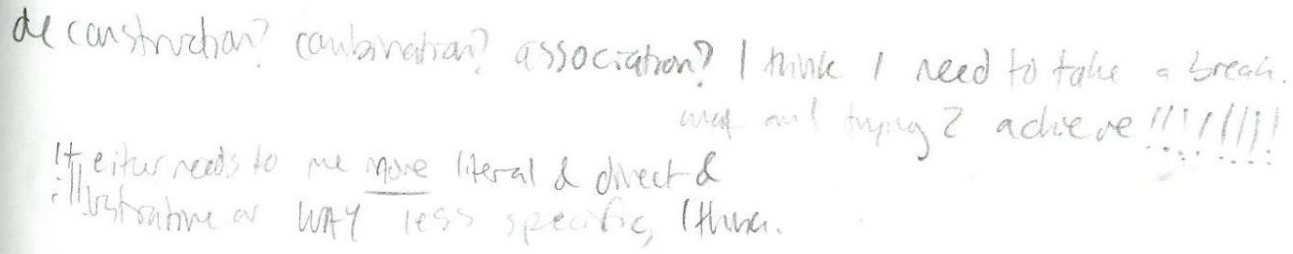 deconstruction? combination? association? I think I need to take a break.
what am I trying 2 achieve!!!!!!!!!
It either needs to me more literal & direct &
illustrative or WAY less specific, I think.